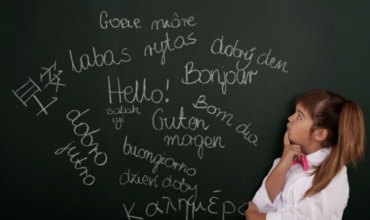 Goeie môre
labas rytas
dobrý den
Bonjour
Hello!
Bom dia
salah
Guten
morgen
dobro
jutro
buongiorno
dzień doby
Καλημέρα